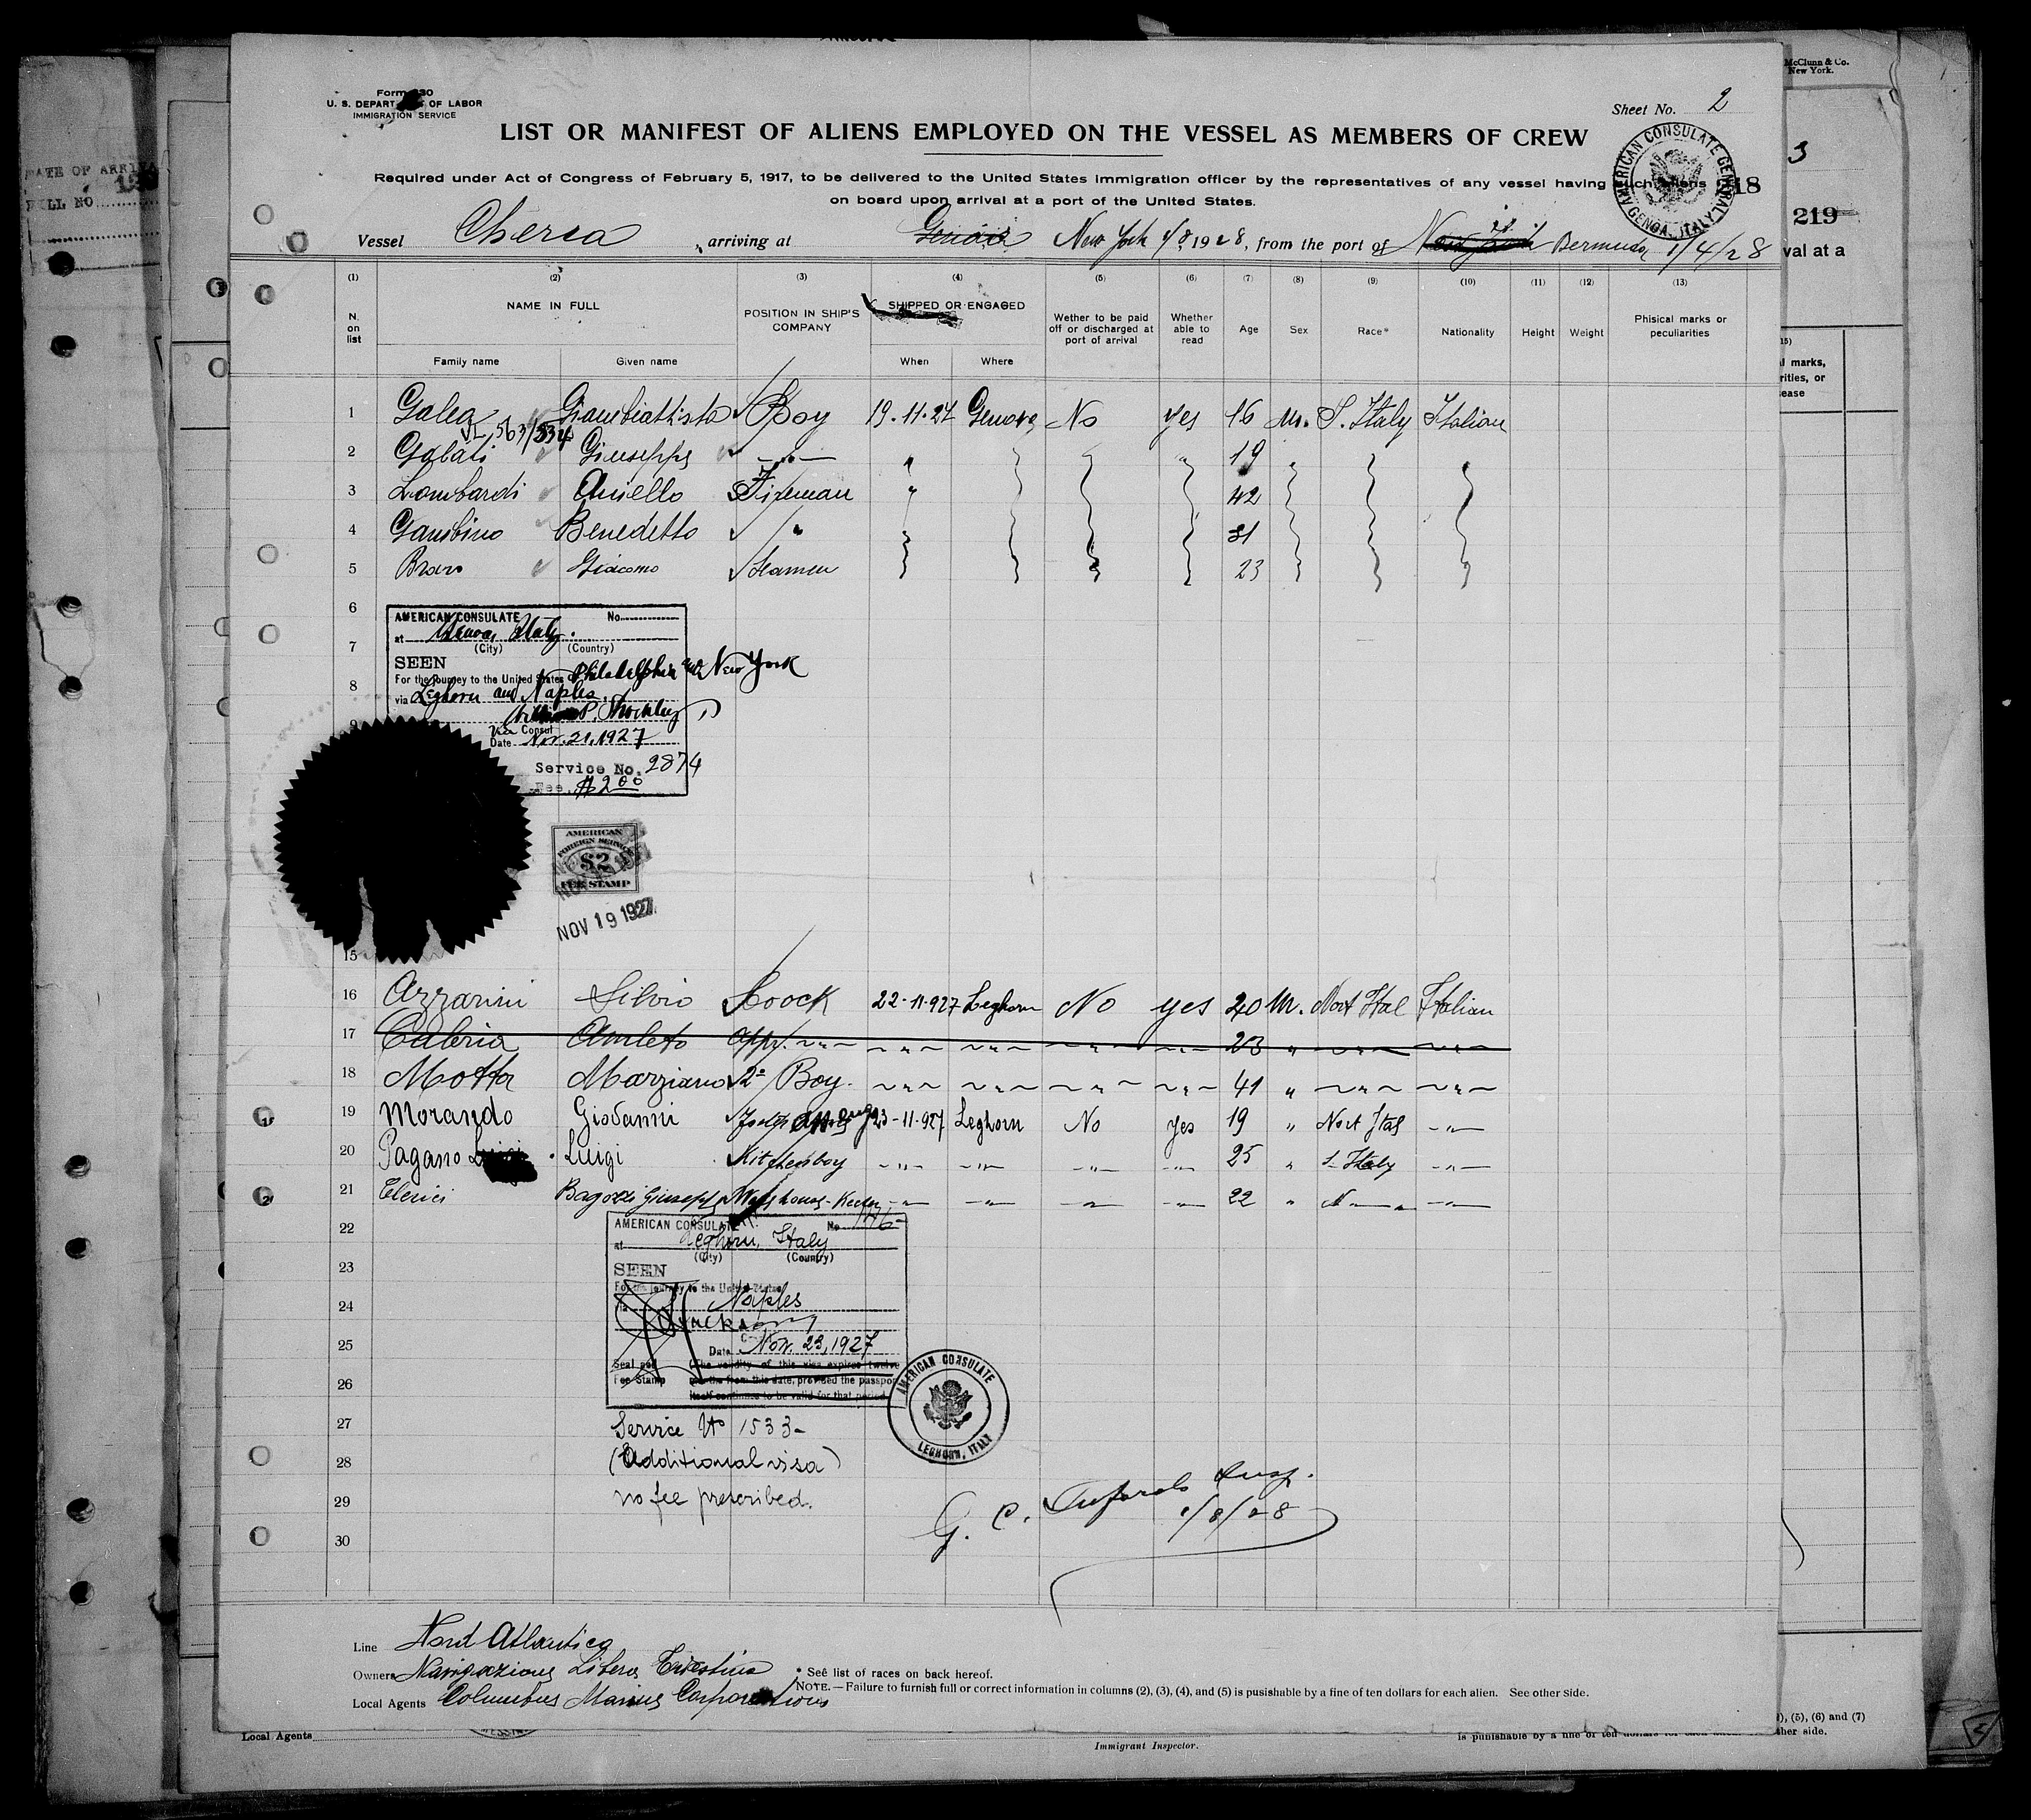 McClunn & Co.
New York.
Form 630
U. S. DEPARTMENT OF LABOR
IMMIGRATION SERVICE
Sheet No. 2
LIST OR MANIFEST OF ALIENS EMPLOYED ON THE VESSEL AS MEMBERS OF CREW
Required under Act of Congress of February 5, 1917, to be delivered to the United States immigration officer by the representatives of any vessel having such aliens
on board upon arrival at a port of the United States.
AMERICAN CONSULATE GENERAL
GENOA, ITALY
18
3
219
val at a
DATE OF ARRIVA
Vessel Cherca, arriving at Genoa New York 1/8 1928, from the port of Bermuda 1/4/28
(1) (2) (3) (4) (5) (6) (7) (8) (9) (10) (11) (12) (13)
N. on list NAME IN FULL POSITION IN SHIP'S COMPANY SHIPPED OR ENGAGED Wether to be paid off or discharged at port of arrival Whether able to read Age Sex Race* Nationality Height Weight Phisical marks or peculiarities
Family name Given name When Where
1 Galea Giambattista Boy 19.11.27 Genova No yes 16 M. S. Italy Italian
VL 563/334
2 Galati Giuseppe " 19
3 Lombardi Aniello Fireman " 42
4 Gambino Benedetto " 31
5 Bravo Giacomo Seamen 23
6
AMERICAN CONSULATE No.
at Genoa Italy.
(City) (Country)
7
SEEN
For the journey to the United States Philadelphia and New York
8
via Leghorn and Naples.
William P. Shockley
9
Vice Consul
Date Nov. 21, 1927
Service No. 2874
Fee. $2.00
AMERICAN
FOREIGN SERVICE
$2
FEE STAMP
NOV 19 1927
15
16 Azzarini Silvio Coock 22-11-927 Leghorn No yes 20 M. Nort Ital Italian
17 Calbria Amleto app. 23 "
18 Motta Marziano 2° Boy 41 "
19 Morando Giovanni 23-11-927 Leghorn No Yes 19 " Nort Ital "
20 Pagano Luigi Luigi Kitchenboy " " " " 25 " S. Italy "
21 Clerici Bagozzi Giuseppe 22 " N
22
AMERICAN CONSULATE No
at Leghorn, Italy
(City) (Country)
23
SEEN
For the journey to the United States
24
via Naples
25
Date Nov. 23, 1927
Seal and (The validity of this visa expires twelve
26
Fee Stamp months from this date, provided the passport
itself continues to be valid for that period.
AMERICAN CONSULATE
LEGHORN, ITALY
27
Service No 1533-
28
(Additional visa)
29
no fee prescribed.
30
G. C. Insp.
1/8/28
Line Nord Atlantica
Owners Navigazione Libera Triestina
* See list of races on back hereof.
NOTE. — Failure to furnish full or correct information in columns (2), (3), (4), and (5) is pusishable by a fine of ten dollars for each alien. See other side.
Local Agents Columbus Marine Corporations
Local Agents
Immigrant Inspector.
), (5), (6) and (7)